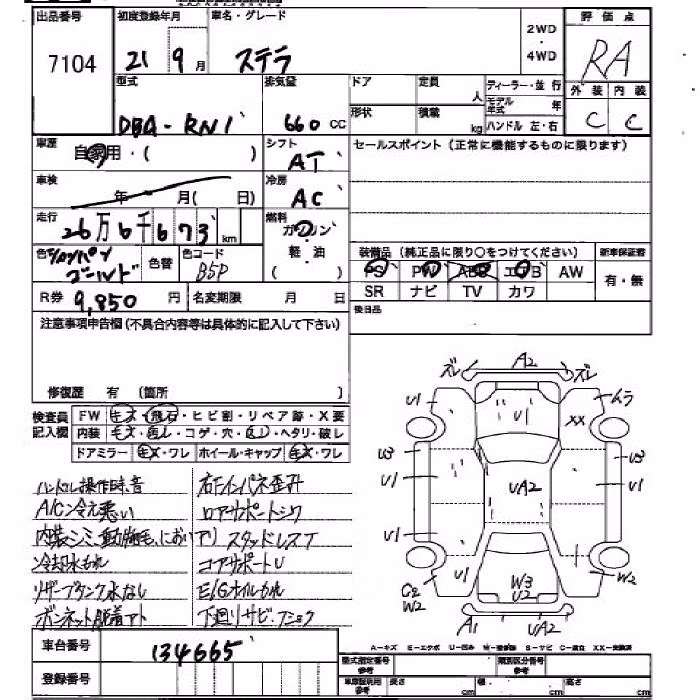 出品番号 初度登録年月 車名・グレード 2WD・4WD 評価点
7104 21 9月 ステラ RA
型式 排気量 ドア 定員 人 ディーラー・並行 外装 内装
DBA-RN1 660 CC 形状 積載 kg モデル年式 年 ハンドル 左・右 C C
車歴 自家用・( ) シフト AT セールスポイント(正常に機能するものに限ります)
車検 年 月( 日) 冷房 AC
走行 26万6千673 km 燃料 ガソリン・軽油( )
色 シャンパンゴールド 色替 色コード B5P
装備品(純正品に限り○をつけてください) 新車保証書
PS PW ABS エアB AW 有・無
SR ナビ TV カワ
R券 9,850 円 名変期限 月 日 後日品
注意事項申告欄(不具合内容等は具体的に記入して下さい)
修復歴 有 (箇所 )
検査員記入欄 FW キズ・飛石・ヒビ割・リペア跡・X要
内装 キズ・汚レ・コゲ・穴・スレ・ヘタリ・破レ
ドアミラー キズ・ワレ ホイール・キャップ キズ・ワレ
ハンドル操作時、音 右Fインパネ歪み
A/C冷え悪い ロアサポートシワ
内装シミ、動物毛、においアリ スタッドレスT
冷却水もれ コアサポートU
リザーブタンク水なし E/Gオイルもれ
ボンネット脱着アト 下廻りサビ・フショク
ズレ A2 ズレ
U1 U1 XX ムラ
U3 U3
U1 UA2 U1
U1 U1
U1 W3 U2
C2 W2 W2
A1 UA2
車台番号 134665
A-キズ E-エクボ U-凹み W-補修跡 S-サビ C-腐食 XX-交換済
登録番号 型式指定番号 参考 類別区分番号 参考
車庫証明用 参考 長さ cm 幅 cm 高さ cm